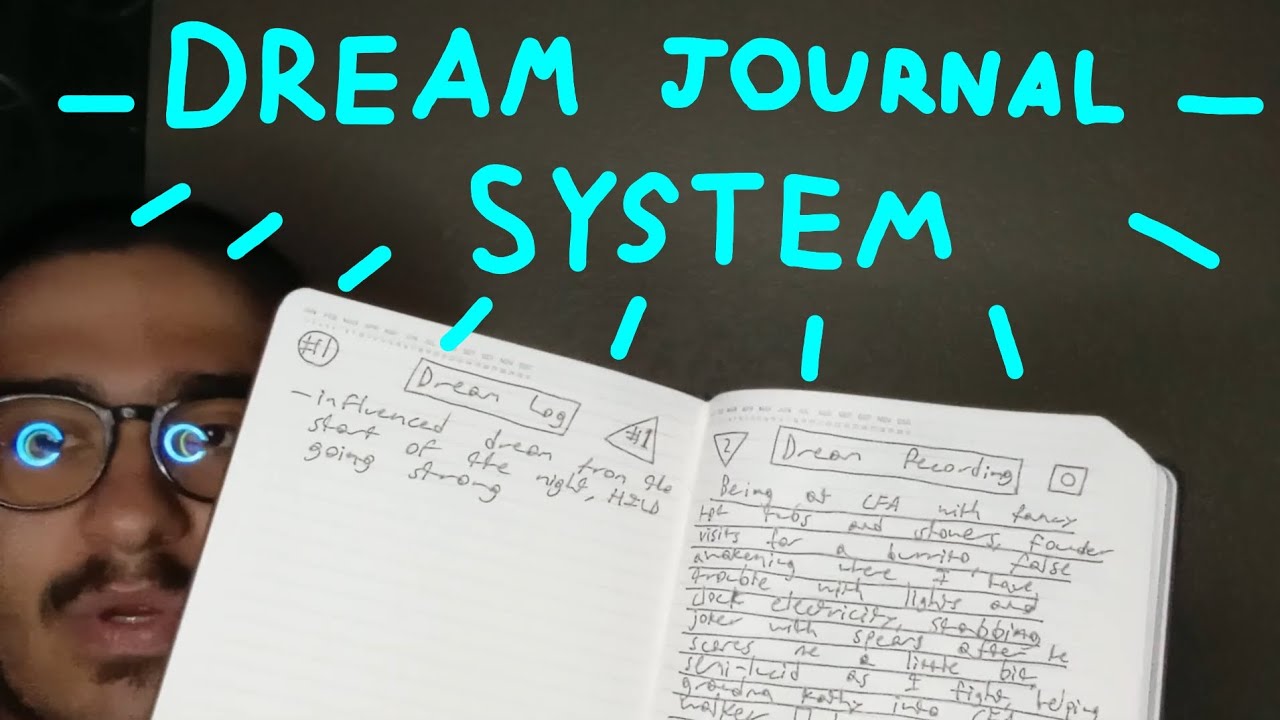 DREAM JOURNAL
SYSTEM
#1
Dream Log
#1
-influenced dream from the
start of the night, HILD
going strong
2
Dream Recording
0
Being at CFA with fancy
hot tubs and showers, founder
visits for a burrito, false
awakening where I have
trouble with lights and
clock electricity, stabbing
joker with spears after he
scares me a little bit,
semi-lucid as I fight, helping
grandma kathy into CFA
walker